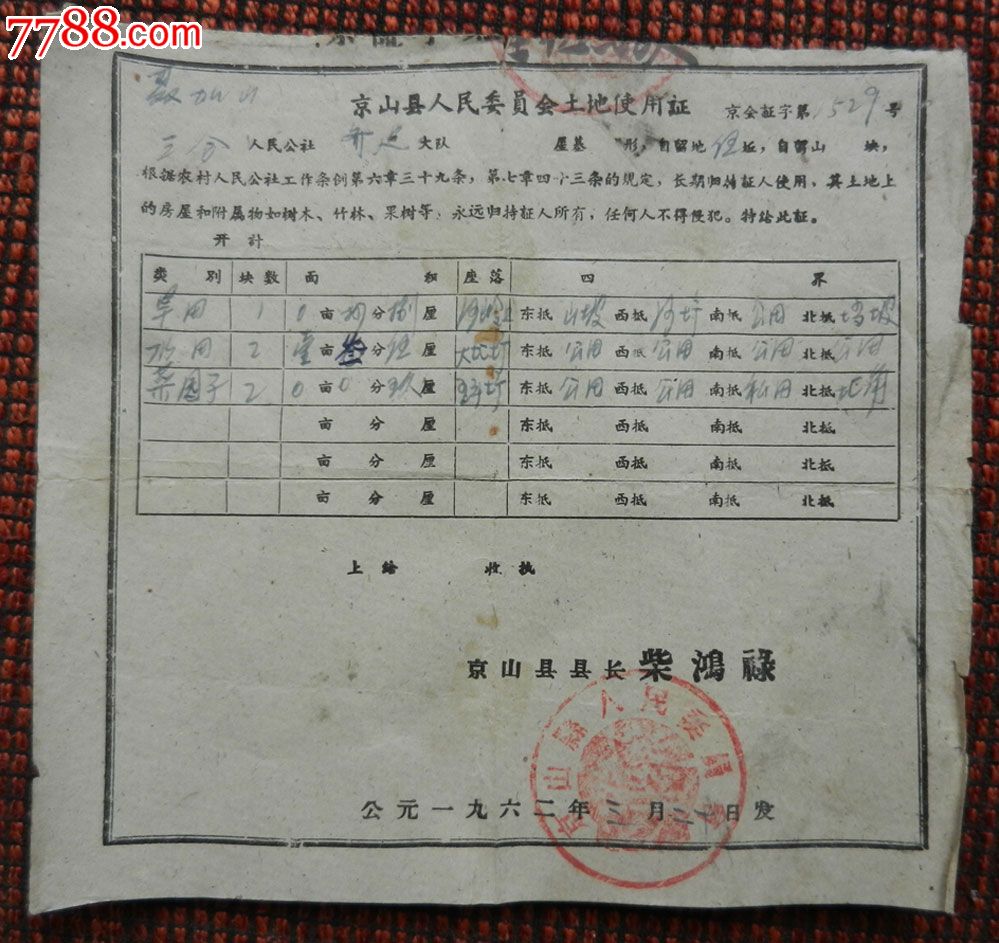 7788.com
中国收藏热线
京山县人民委員会土地使用证
京会証字第1529号
三合人民公社 大队 屋基 形,自留地伍坵,自留山 块,
根据农村人民公社工作条例第六章三十九条,第七章四十三条的规定,长期归持証人使用,其土地上
的房屋和附属物如树木、竹林、果树等,永远归持証人所有,任何人不得侵犯。特给此証。
开計
类别 块数 面积 座落 四界
旱田 1 0亩 分捌厘 东抵山坡 西抵 南抵公田 北抵
水田 2 壹亩叁分伍厘 东抵公田 西抵公田 南抵公田 北抵公田
菜园子 2 0亩0分玖厘 东抵公田 西抵公田 南抵私田 北抵
亩 分 厘 东抵 西抵 南抵 北抵
亩 分 厘 东抵 西抵 南抵 北抵
亩 分 厘 东抵 西抵 南抵 北抵
上給 收执
京山县县长柴鴻祿
京山縣人民委員會
公元一九六二年三月二十日发